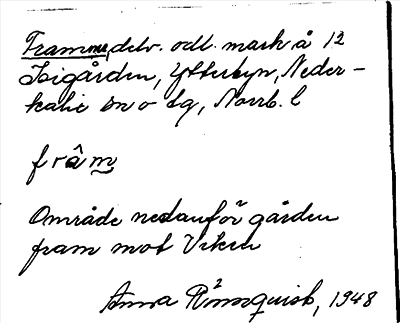 Framme, delv. odl. mark å 12
Isigården, Ytterbyn, Neder-
kalix sn o tg, Norrb. l
fråm
Område nedanför gården
fram mot Viken
Anna Rönnquist, 1948